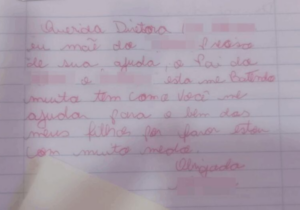 Querida Diretora
eu mãe do Preciso
de sua, ajuda, o Pai do
e esta me Batendo
muito tem como você me
ajudar para o bem dos
meus filhos por favor estou
com muito medo
Obrigada